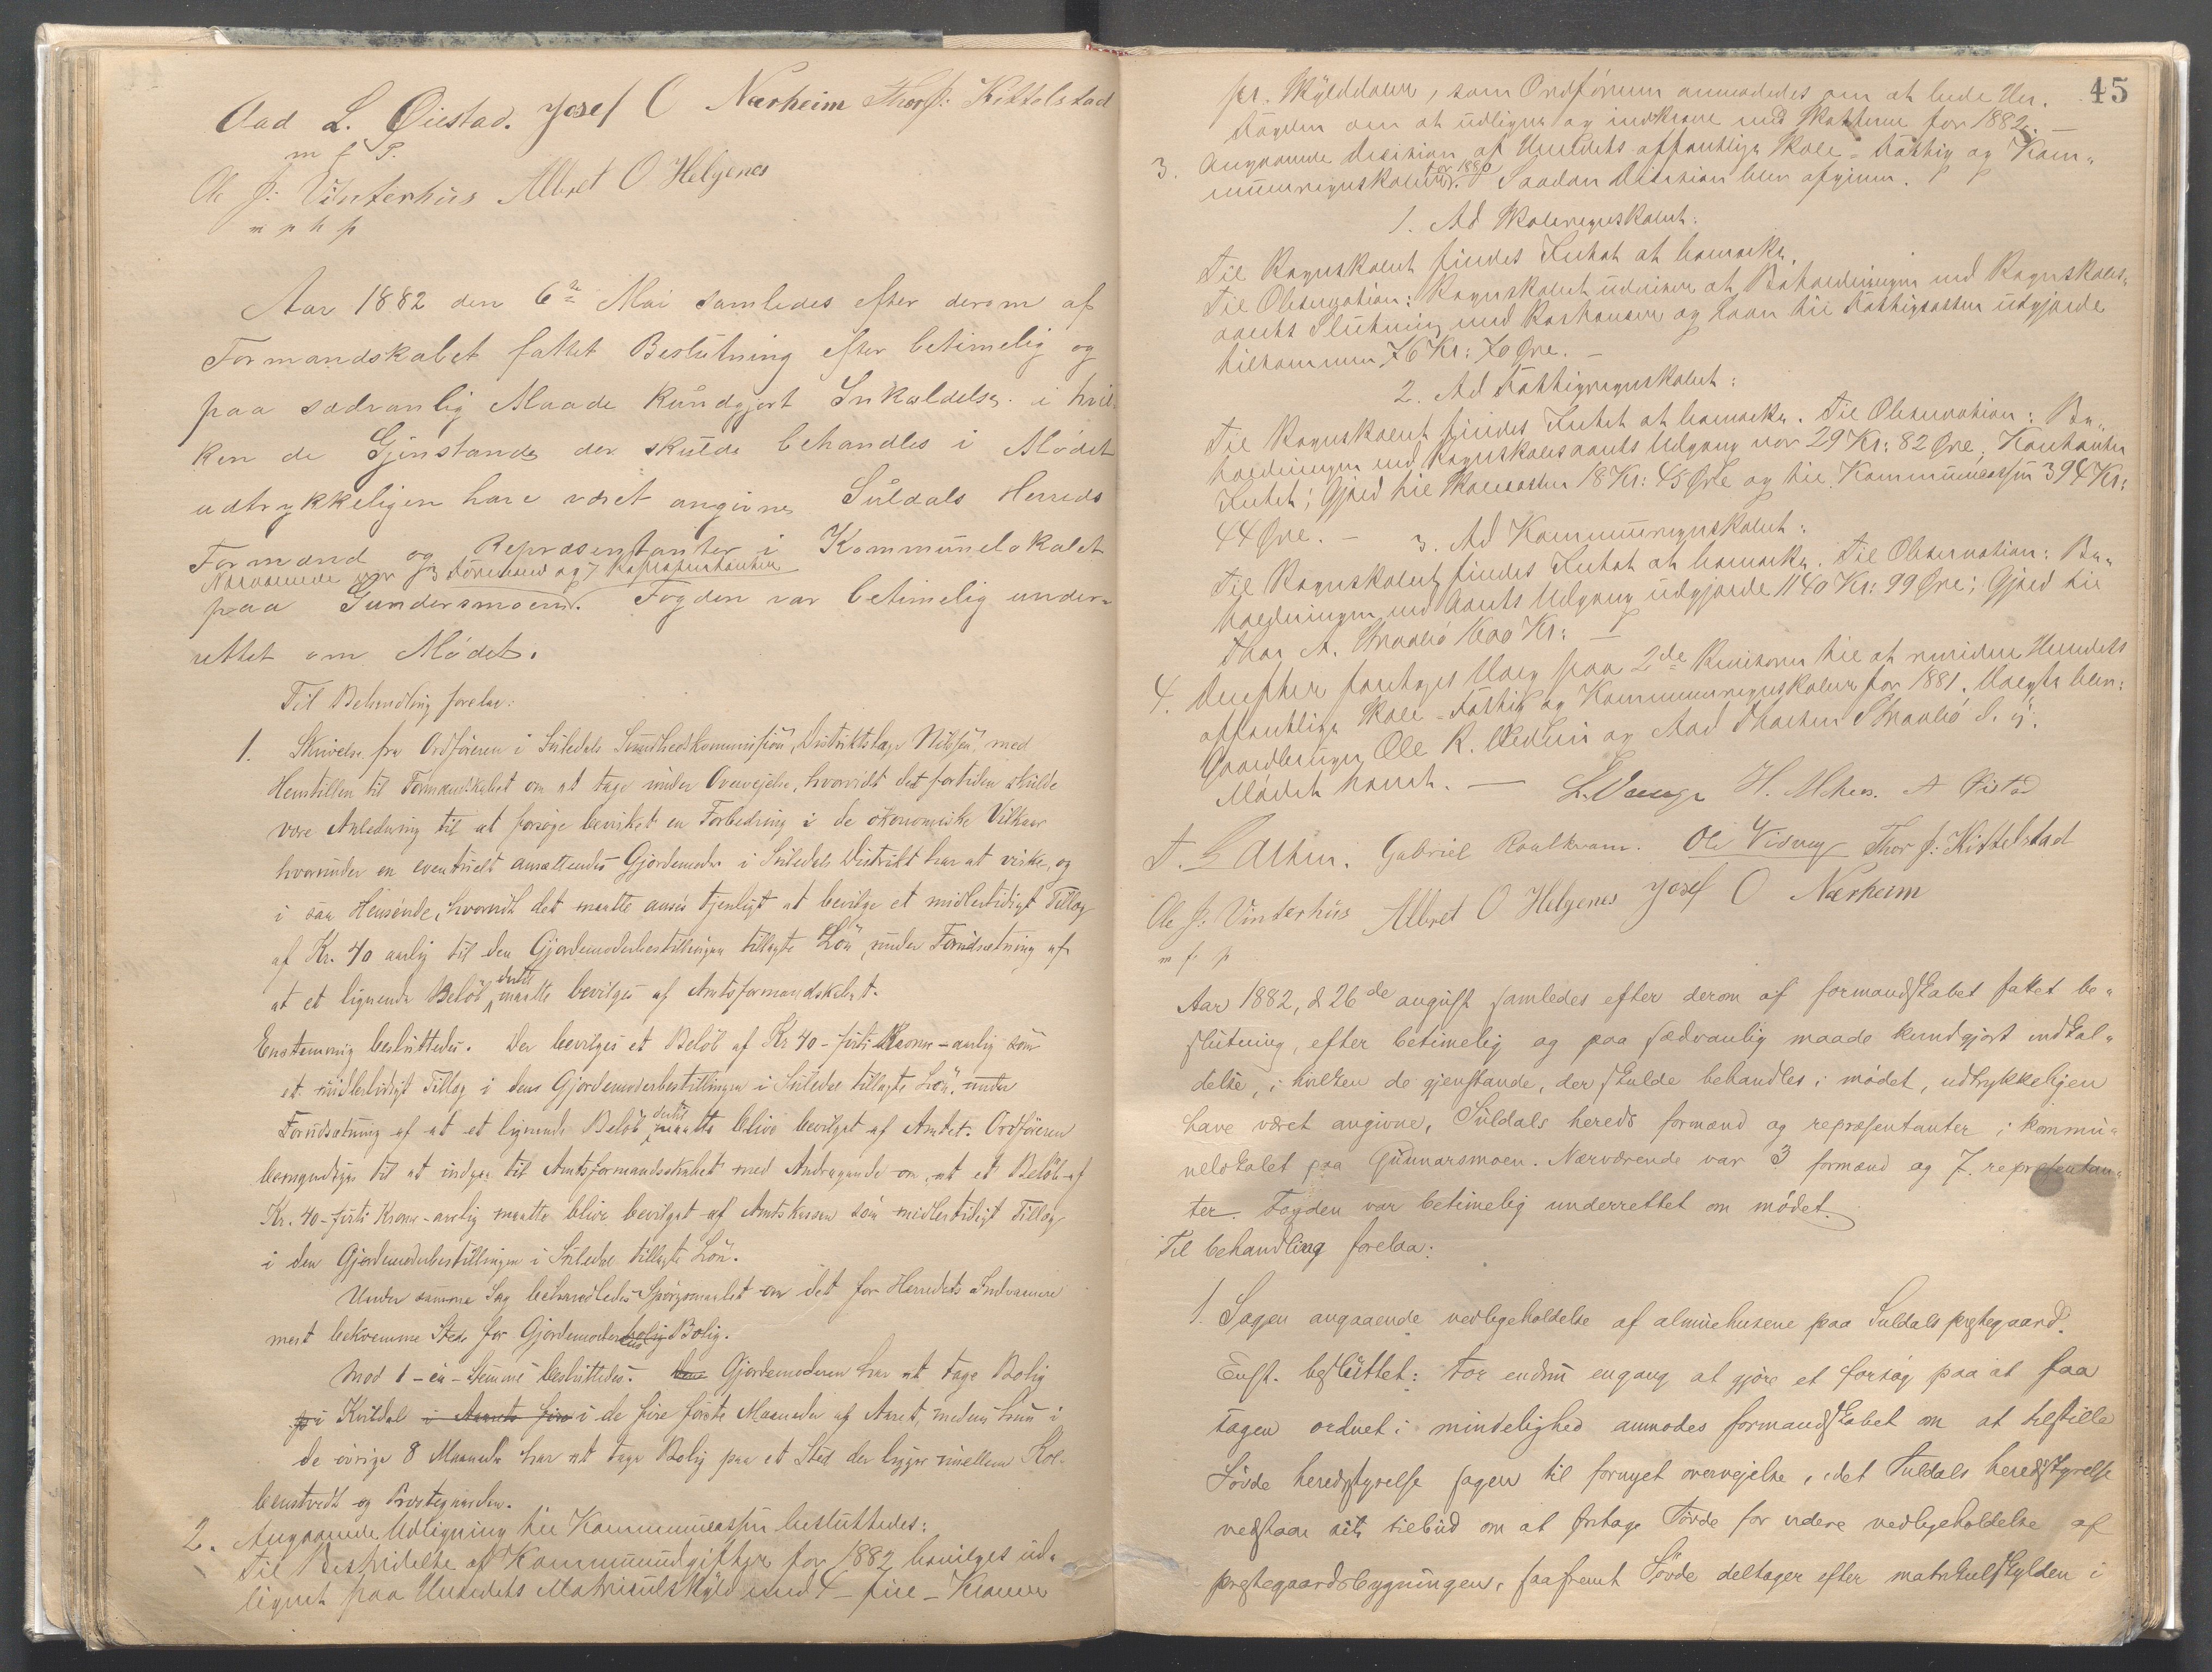 Aad L. Øiestad. Josef O Nærheim Thor J: Kittelstad
m f P.
Ole J: Vinterhüs Albret O Helgenes
m p h p
Aar 1882 den 6te Mai samledes efter derom af
Formandskabet fattet Beslutning efter betimelig og
paa sædvanlig Maade Kundgjort Inkaldelse. i hvil-
ken de Gjenstande der skulde behandles i Mødet
udtrykkeligen have været angivne Suldals Herreds
Formænd og Repræsentanter i Kommunelokalet
Nærværende var 3 Formænd og 7 Repræsentanter
paa Gundersmoen. Fogden var betimelig under-
rettet om Mødet.
Til Behandling forelaa:
1. Skrivelse fra Ordføreren i Suledals Sundhedskommission, Distriktslæge Nilssen, med
Henstillen til Formandskabet om at tage under Overveielse, hvorvidt det fortiden skulde
være Anledning til at forsøge bevirket en Forbedring i de økonomiske Vilkaar
hvorunder en eventuelt ansættendes Gjordemoder i Suledals Distrikt har at virke, og
i saa Henseende, hvorvidt det maatte ansees tjenligt at bevilge et midlertidigt Tillæg
af Kr. 40 aarlig til den Gjordemoderbestillingen tillagte Løn, under Forudsætning af
at et lignende Beløb dertil maatte bevilges af Amtsformandskabet.
Enstemmig besluttedes. Der bevilges et Beløb af Kr 40 - firti Kroner - aarlig som
et midlertidigt Tillæg i den Gjordemoderbestillingen i Suledal tillagte Løn, under
Forudsætning af at et lignende Beløb dertil maatte blive bevilget af Amtet. Ordføreren
bemyndiges til at indgaa til Amtsformandskabet med Andragende om, at et Beløb af
Kr. 40 - firti Kroner - aarlig maatte blive bevilget af Amtskassen som midlertidigt Tillæg
i den Gjordemoderbestillingen i Suledal tillagte Løn.
Under samme Sag behandledes Spørgsmaalet om det for Herredets Indvaanere
mest bekvemme Sted for Gjordemoderens Bolig.
Mod 1 - en - Stemme besluttedes. Gjordemoderen har at tage Bolig
i Kvildal i Aarets fire i de fire første Maaneder af Aaret, medens hun i
de øvrige 8 Maaneder har at tage Bolig paa et Sted der ligger mellem Kol-
benstvedt og Præstegaarden.
2. Angaaende Udligning til Kommunekassen besluttedes:
Til Bestridelse af Kommuneudgifter for 1882 bevilges ud-
lignet paa Herredets Matrikulskyld med 4 - fire - Kroner
45
pr. Skylddaler, som Ordføreren anmodedes om at bede Her.
Fogden om at udligne og indkræve med Skatterne for 1882. —
3. Angaaende Decision af Herredets offentlige Skole- Fattig og Kom-
muneregnskaber for 1880. Saadan Decision blev afgiven.
1. Ad Skoleregnskabet:
Til Regnskabet findes Intet at bemærke.
Til Observation: Regnskabet udviser at Beholdningen ved Regnskabs-
aarets Slutning med Restancer og Laan til Fattigkassen udgjorde
tilsammen 76 Kr: 70 Øre. —
2. Ad Fattigregnskabet:
Til Regnskabet findes Intet at bemærke. Til Observation: Be-
holdningen ved Regnskabsaarets Udgang var 29 Kr: 82 Øre, Restancer
Intet; Gjæld til Skolekassen 18 Kr: 45 Øre og til Kommunekassen 394 Kr:
44 Øre. — 3. Ad Kommuneregnskabet:
Til Regnskabet findes Intet at bemærke. Til Observation: Be-
holdningen ved Aarets Udgang udgjorde 1140 Kr: 99 Øre; Gjæld til
Thor A. Straabø 1600 Kr: —
4. Derefter foretoges Valg paa 2de Revisorer til at revidere Herredets
offentlige Skole- Fattig og Kommuneregnskaber for 1881. Valgte blev:
Gaardbruger Ole R. og Aad Thorsen Straabø d. y.
Mødet hævet. — H. Mehus. A Øistad
Gabriel Roalkvam. Ole Vidvey Thor J: Kittelstad
Ole J: Vinterhüs Albret O Helgenes Josef O Nærheim
m f. p
Aar 1882, d 26de august samledes efter derom af formandskabet fattet be-
slutning, efter betimelig og paa sædvanlig maade kundgjort indkal-
delse, i hvilken de gjenstande, der skulde behandles i mødet, udtrykkeligen
have været angivne, Suldals hereds formænd og repræsentanter i kommu-
nelokalet paa Gunnarsmoen. Nærværende var 3 formænd og 7. repræsentan-
ter. Fogden var betimelig underrettet om mødet.
Til behandling forelaa:
1. Sagen angaaende vedligeholdelse af almuehusene paa Suldals prestegaard.
Enst. besluttet: For endnu engang at gjøre et forsøg paa at faa
sagen ordnet i mindelighed anmodes formandskabet om at tilstille
Søvde heredsstyrelse sagen til fornyet overvejelse, idet Suldals heredsstyrelse
vedstaar sit tilbud om at fritage Søvde for videre vedligeholdelse af
prestegaardsbygningen, saafremt Søvde deltager efter matrikulskylden i